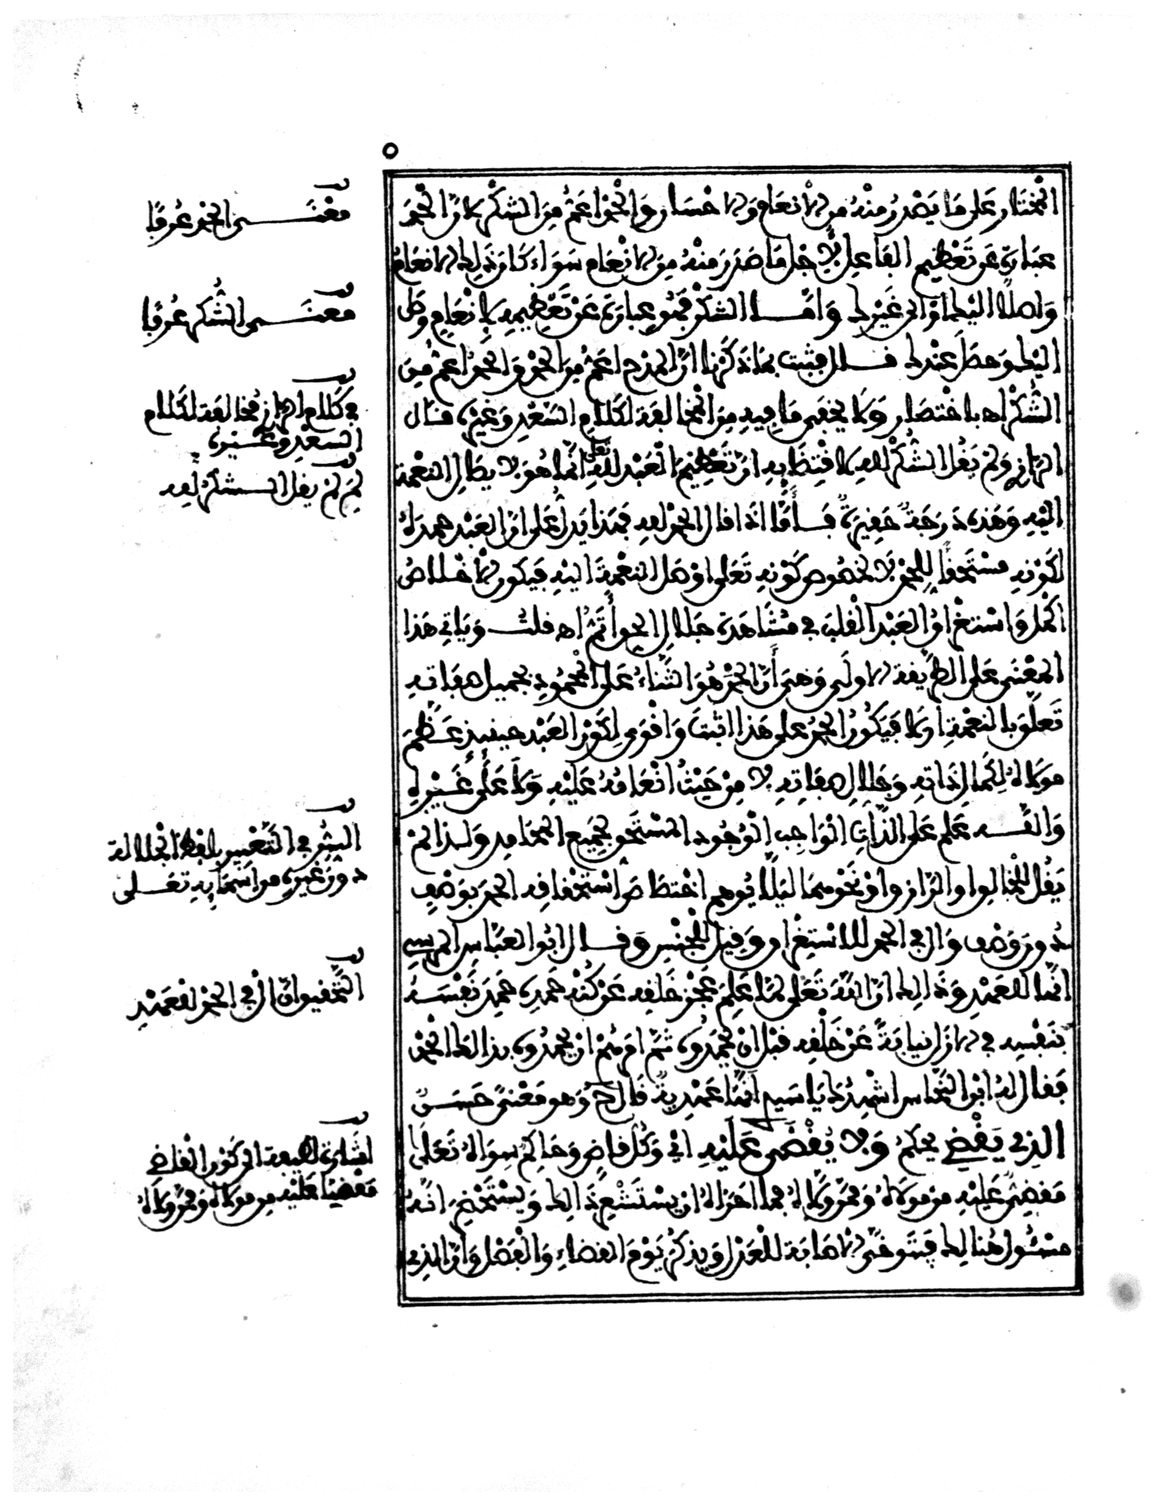 ٥
المختار على ما يصدر منه من الانعام والاحسان والحمد اعم من الشكر لان الحمد
عبارة عن تعظيم الفاعل لاجل ما صدر منه من الانعام سواء كان ذلك الانعام
واصلا اليك او الى غيرك واما الشكر فهو عبارة عن تعظيمه لانعام وصل
اليك وحصل عندك فلل فثبت بما ذكرنا ان المدح اعم من الحمد والحمد اعم من
الشكر اه باختصار ولا يخفى ما فيه من المخالفة لكلام السعد وغيره قال
الرازي ولم يقل الشكر لله لاقتضايه ان تعظيم العبد لله انما هو لايصال النعمة
اليه وهذه درجة حقيرة فأما اذا قال الحمد لله فهذا يدل على ان العبد حمده
لكونه مستحقا للحمد لا لخصوص كونه تعلى اوصل النعمة اليه فيكون الاخلاص
اكمل واستغراق العبد القلب في مشاهدة جلال الحق أتم اه قلت وياتي هذا
المعنى على الطريقة الاولى وهي أن الحمد هو الثناء على المحمود بجميل صفاته
تعلق بالنعمة ام لا فيكون الحمد على هذا اثبت واقوى لكون العبد حينيذ عظم
مولاه لكمال ذاته وجلال صفاته لا من حيث انعامه عليه ولا على غيره
والله علم على الذات الواجب الوجود المستحق لجميع المحامد ولذا لم
يقل للخالق او الرازق او نحوهما ليلا يوهم اختصاص استحقاقه الحمد بوصف
دون وصف وال في الحمد للاستغراق وقيل للجنس وقال ابو العباس المرسي
انها للعهد وذالك ان الله تعلى لما علم عجز خلقه عن كنه حمده حمد نفسه
بنفسه في الازل نيابة عن خلقه قبل ان يحمدوه ثم امرهم ان يحمدوه بذالك الحمد
فقال له ابن النحاس اشهدك يا سيدي انها عهدية قال ح وهو معنى حسن
الذي يقضي يحكم ولا يقضى عليه اي وكل قاض وحاكم سواه تعلى
مقضي عليه من مولاه ومن ولاه فما احراه ان يستشعر ذالك ويستحضر انه
مسئول هنالك فيتوخى الاصابة للعدل ويذكر يوم القضاء والفصل وان الذي
معنى الحمد عرفا
معنى الشكر عرفا
في كلام الرازي مخالفة لكلام
السعد وغيره
لم لم يقل الشكر لله
السر في التعبير بلفظ الجلالة
دون غيره من اسمايه تعلى
التحقيق ان ال في الحمد للعهد
اشارة لطيفة الى كون القاضي
مقضيا عليه من مولاه ومن ولاه